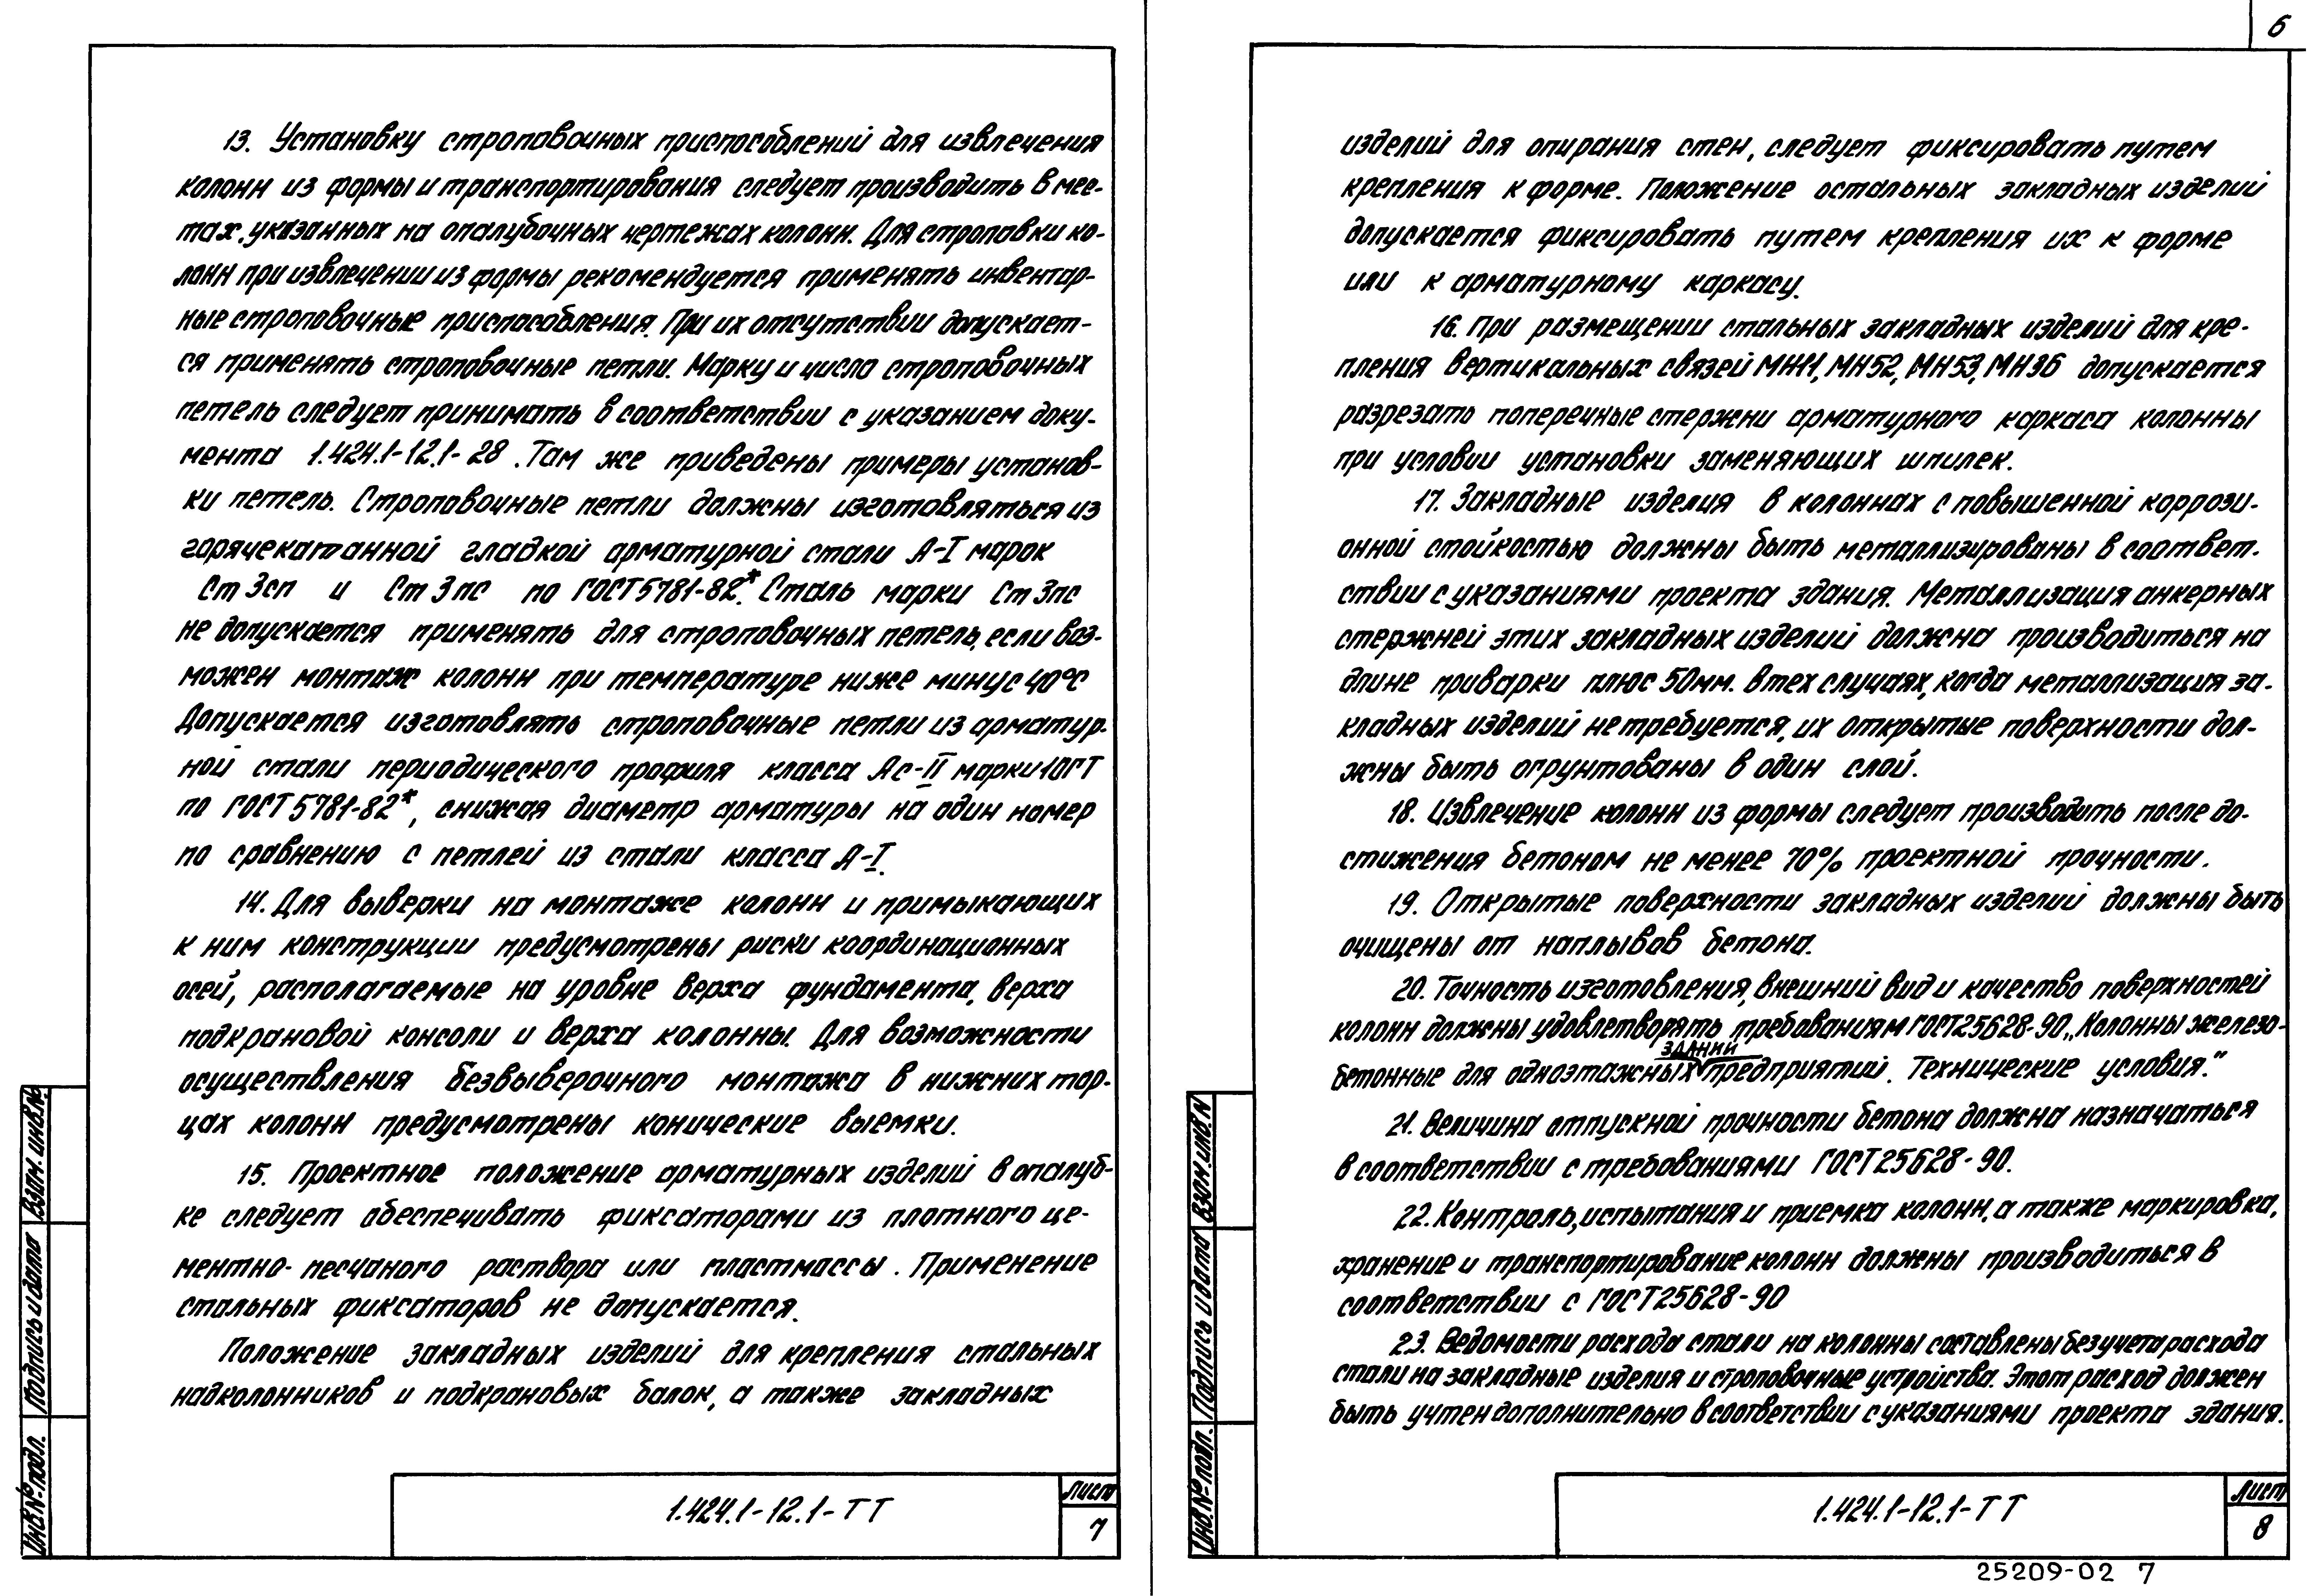 13. Установку строповочных приспособлений для извлечения
колонн из формы и транспортирования следует производить в мес-
тах, указанных на опалубочных чертежах колонн. Для строповки ко-
лонн при извлечении из формы рекомендуется применять инвентар-
ные строповочные приспособления. При их отсутствии допускает-
ся применять строповочные петли. Марку и число строповочных
петель следует принимать в соответствии с указанием доку-
мента 1.424.1-12.1-28. Там же приведены примеры установ-
ки петель. Строповочные петли должны изготовляться из
горячекатанной гладкой арматурной стали А-I марок
Ст 3сп и Ст 3пс по ГОСТ 5781-82*. Сталь марки Ст 3пс
не допускается применять для строповочных петель, если воз-
можен монтаж колонн при температуре ниже минус 40°С
Допускается изготовлять строповочные петли из арматур-
ной стали периодического профиля класса Ас-II марки 10ГТ
по ГОСТ 5781-82*, снижая диаметр арматуры на один номер
по сравнению с петлей из стали класса А-I.
14. Для выверки на монтаже колонн и примыкающих
к ним конструкции предусмотрены риски координационных
осей, располагаемые на уровне верха фундамента, верха
подкрановой консоли и верха колонны. Для возможности
осуществления безвыверочного монтажа в нижних тор-
цах колонн предусмотрены конические выемки.
15. Проектное положение арматурных изделий в опалуб-
ке следует обеспечивать фиксаторами из плотного це-
ментно-песчаного раствора или пластмассы. Применение
стальных фиксаторов не допускается.
Положение закладных изделий для крепления стальных
надколонников и подкрановых балок, а также закладных
1.424.1-12.1-ТТ
Лист
7
Взам. инв.№
Подпись и дата
Инв.№ подл.
6
изделий для опирания стен, следует фиксировать путем
крепления к форме. Положение остальных закладных изделий
допускается фиксировать путем крепления их к форме
или к арматурному каркасу.
16. При размещении стальных закладных изделий для кре-
пления вертикальных связей МН11, МН52, МН53, МН36 допускается
разрезать поперечные стержни арматурного каркаса колонны
при условии установки заменяющих шпилек.
17. Закладные изделия в колоннах с повышенной коррози-
онной стойкостью должны быть металлизированы в соответ-
ствии с указаниями проекта здания. Металлизация анкерных
стержней этих закладных изделий должна производиться на
длине приварки плюс 50мм. В тех случаях, когда металлизация за-
кладных изделий не требуется, их открытые поверхности дол-
жны быть огрунтованы в один слой.
18. Извлечение колонн из формы следует производить после до-
стижения бетоном не менее 70% проектной прочности.
19. Открытые поверхности закладных изделий должны быть
очищены от наплывов бетона.
20. Точность изготовления, внешний вид и качество поверхностей
колонн должны удовлетворять требованиям ГОСТ25628-90 „Колонны железо-
зданий
бетонные для одноэтажных предприятий. Технические условия."
21. Величина отпускной прочности бетона должна назначаться
в соответствии с требованиями ГОСТ25628-90.
22. Контроль, испытания и приемка колонн, а также маркировка,
хранение и транспортирование колонн должны производиться в
соответствии с ГОСТ25628-90
23. Ведомости расхода стали на колонны составлены без учета расхода
стали на закладные изделия и строповочные устройства. Этот расход должен
быть учтен дополнительно в соответствии с указаниями проекта здания.
1.424.1-12.1-ТТ
Лист
8
Взам.инв.N
Подпись и дата
Инв.№ подл.
25209-02 7